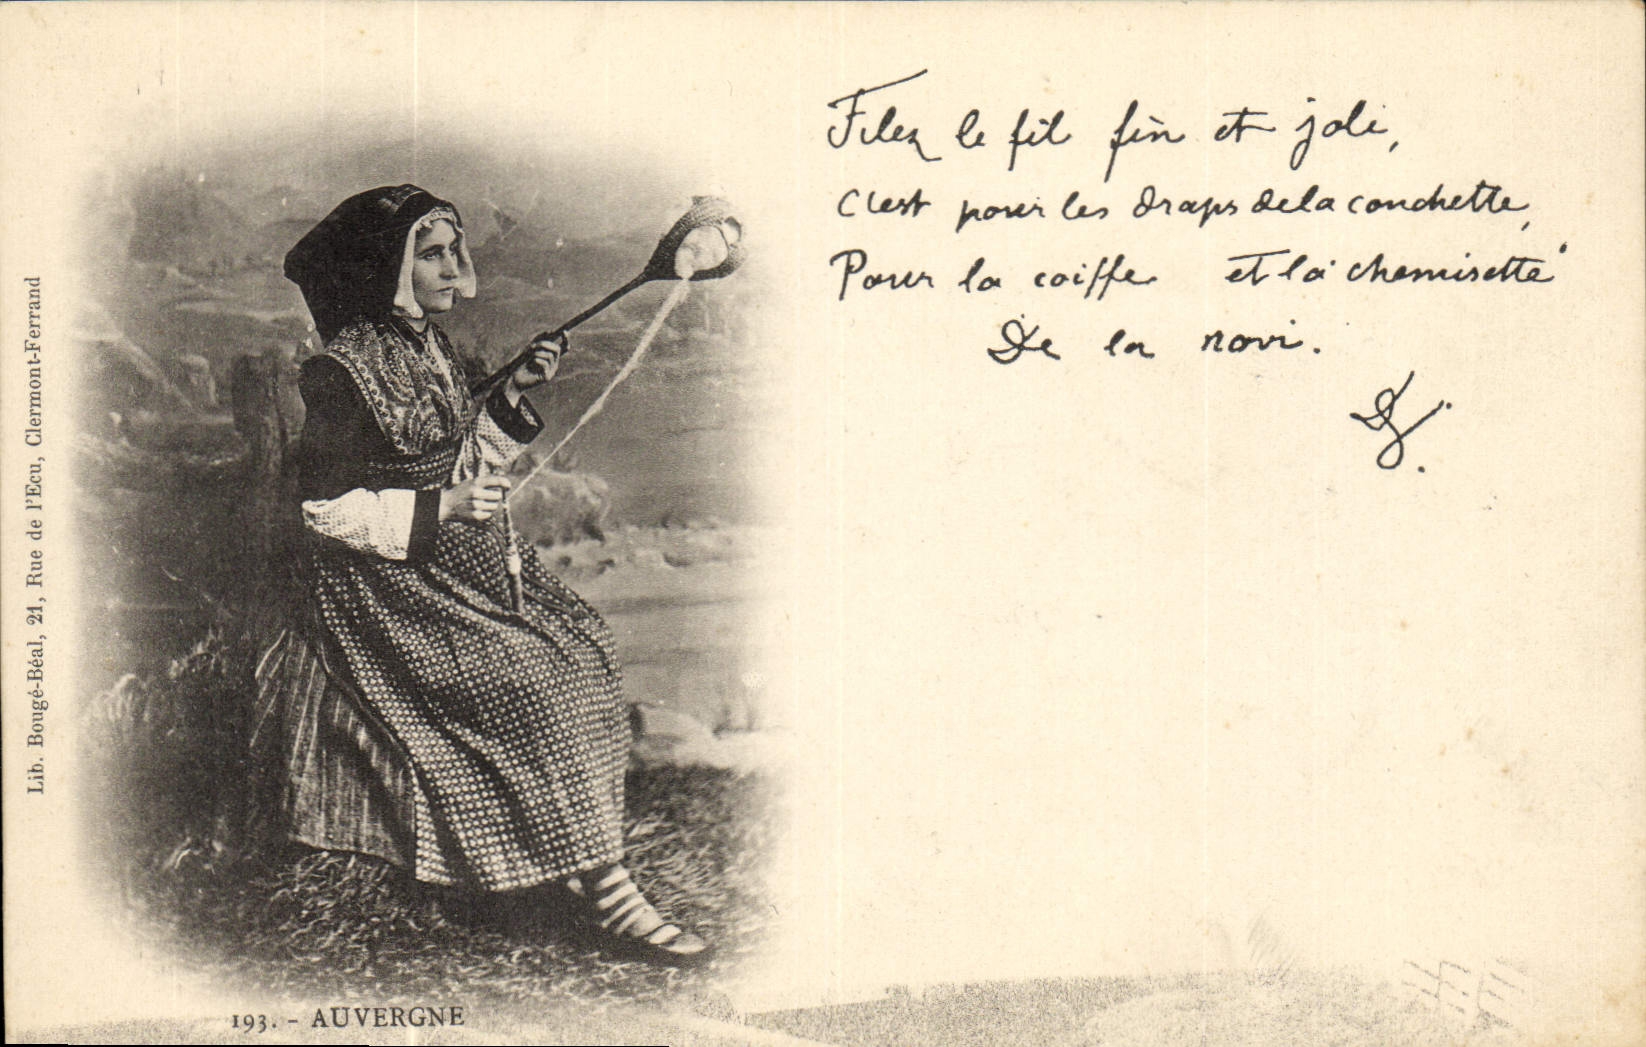 Filez le fil fin et joli,
C'est pour les draps de la couchette,
Pour la coiffe et la chemisette
De la novi.
193. - AUVERGNE
Lib. Bougé-Béal, 21, Rue de l'Ecu, Clermont-Ferrand